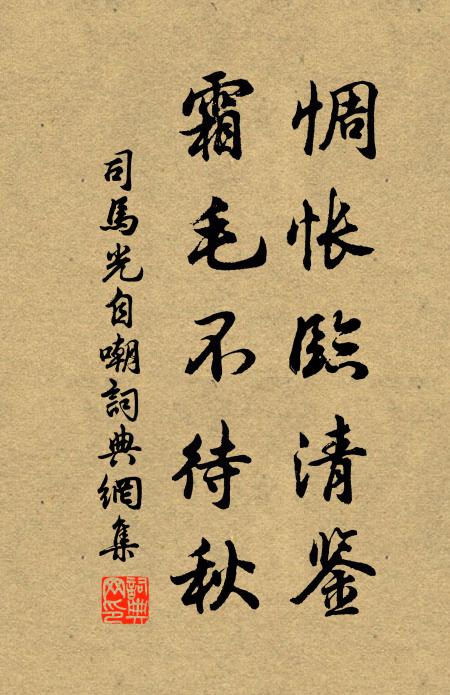 惆怅臨清鉴
霜毛不待秋
司馬光自嘲詞典網集
詞典网印